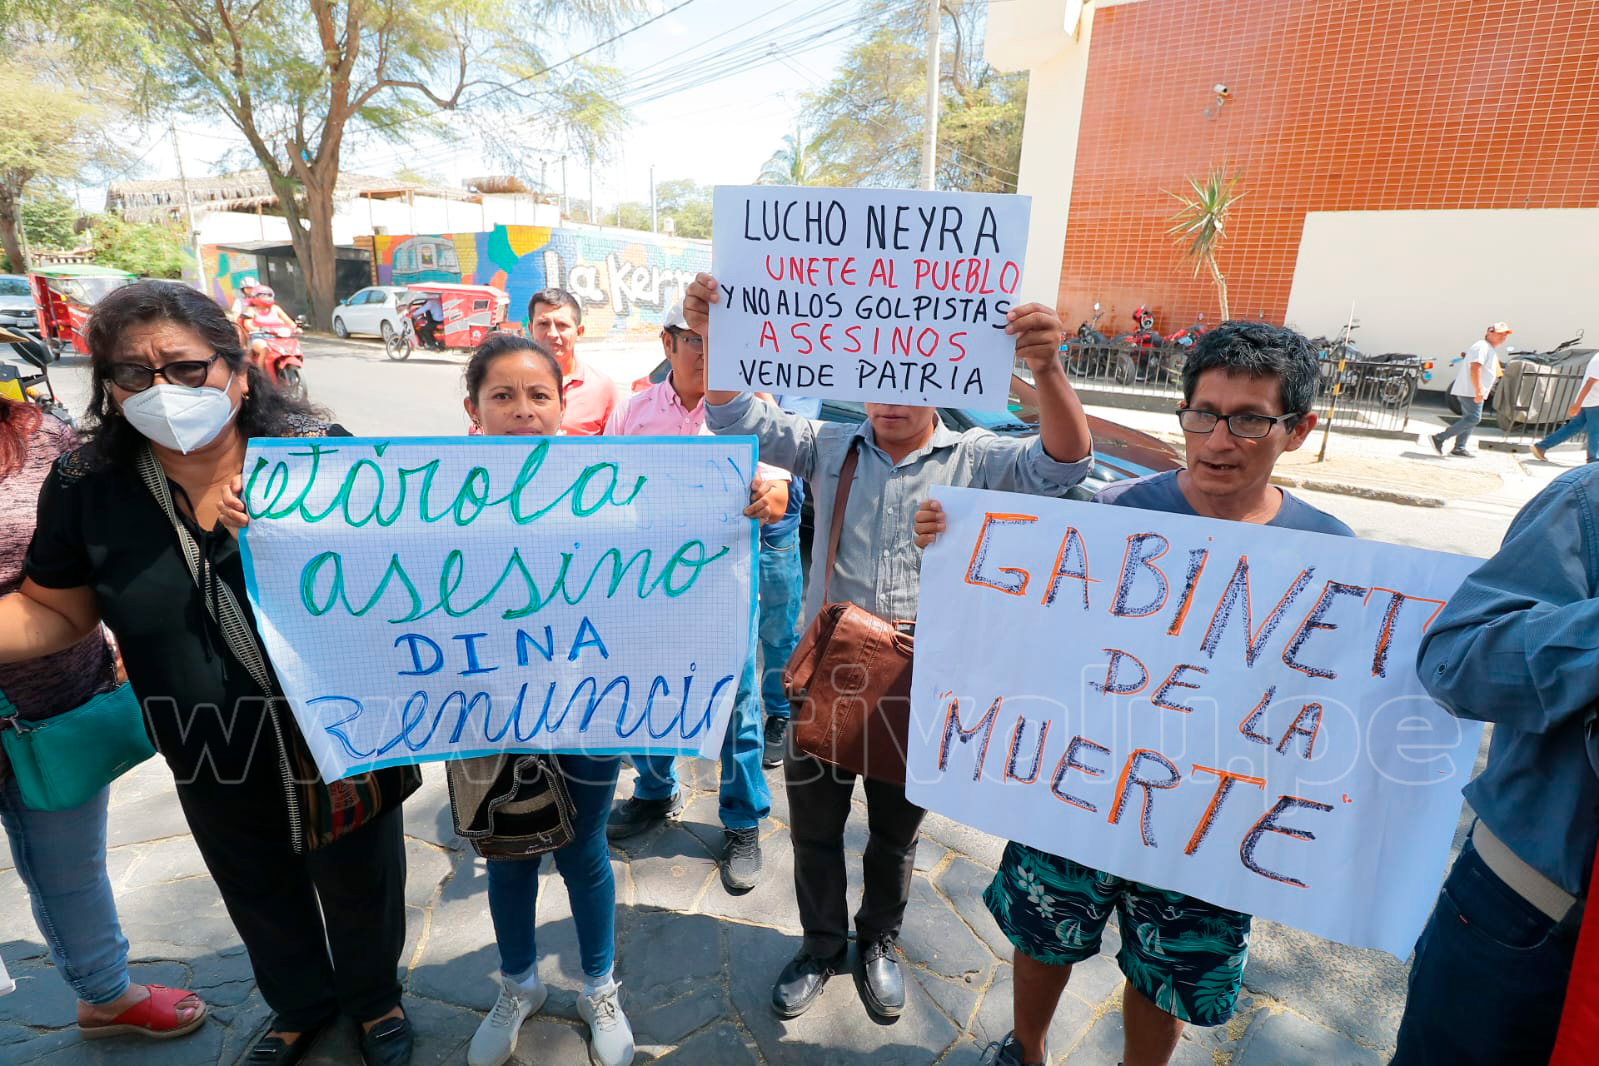 LUCHO NEYRA
UNETE AL PUEBLO
Y NO A LOS GOLPISTAS
ASESINOS
VENDE PATRIA
otárola
asesino
DINA
Renuncia
GABINET
DE LA
"MUERTE"
La Kerm
www.cutivalu.pe